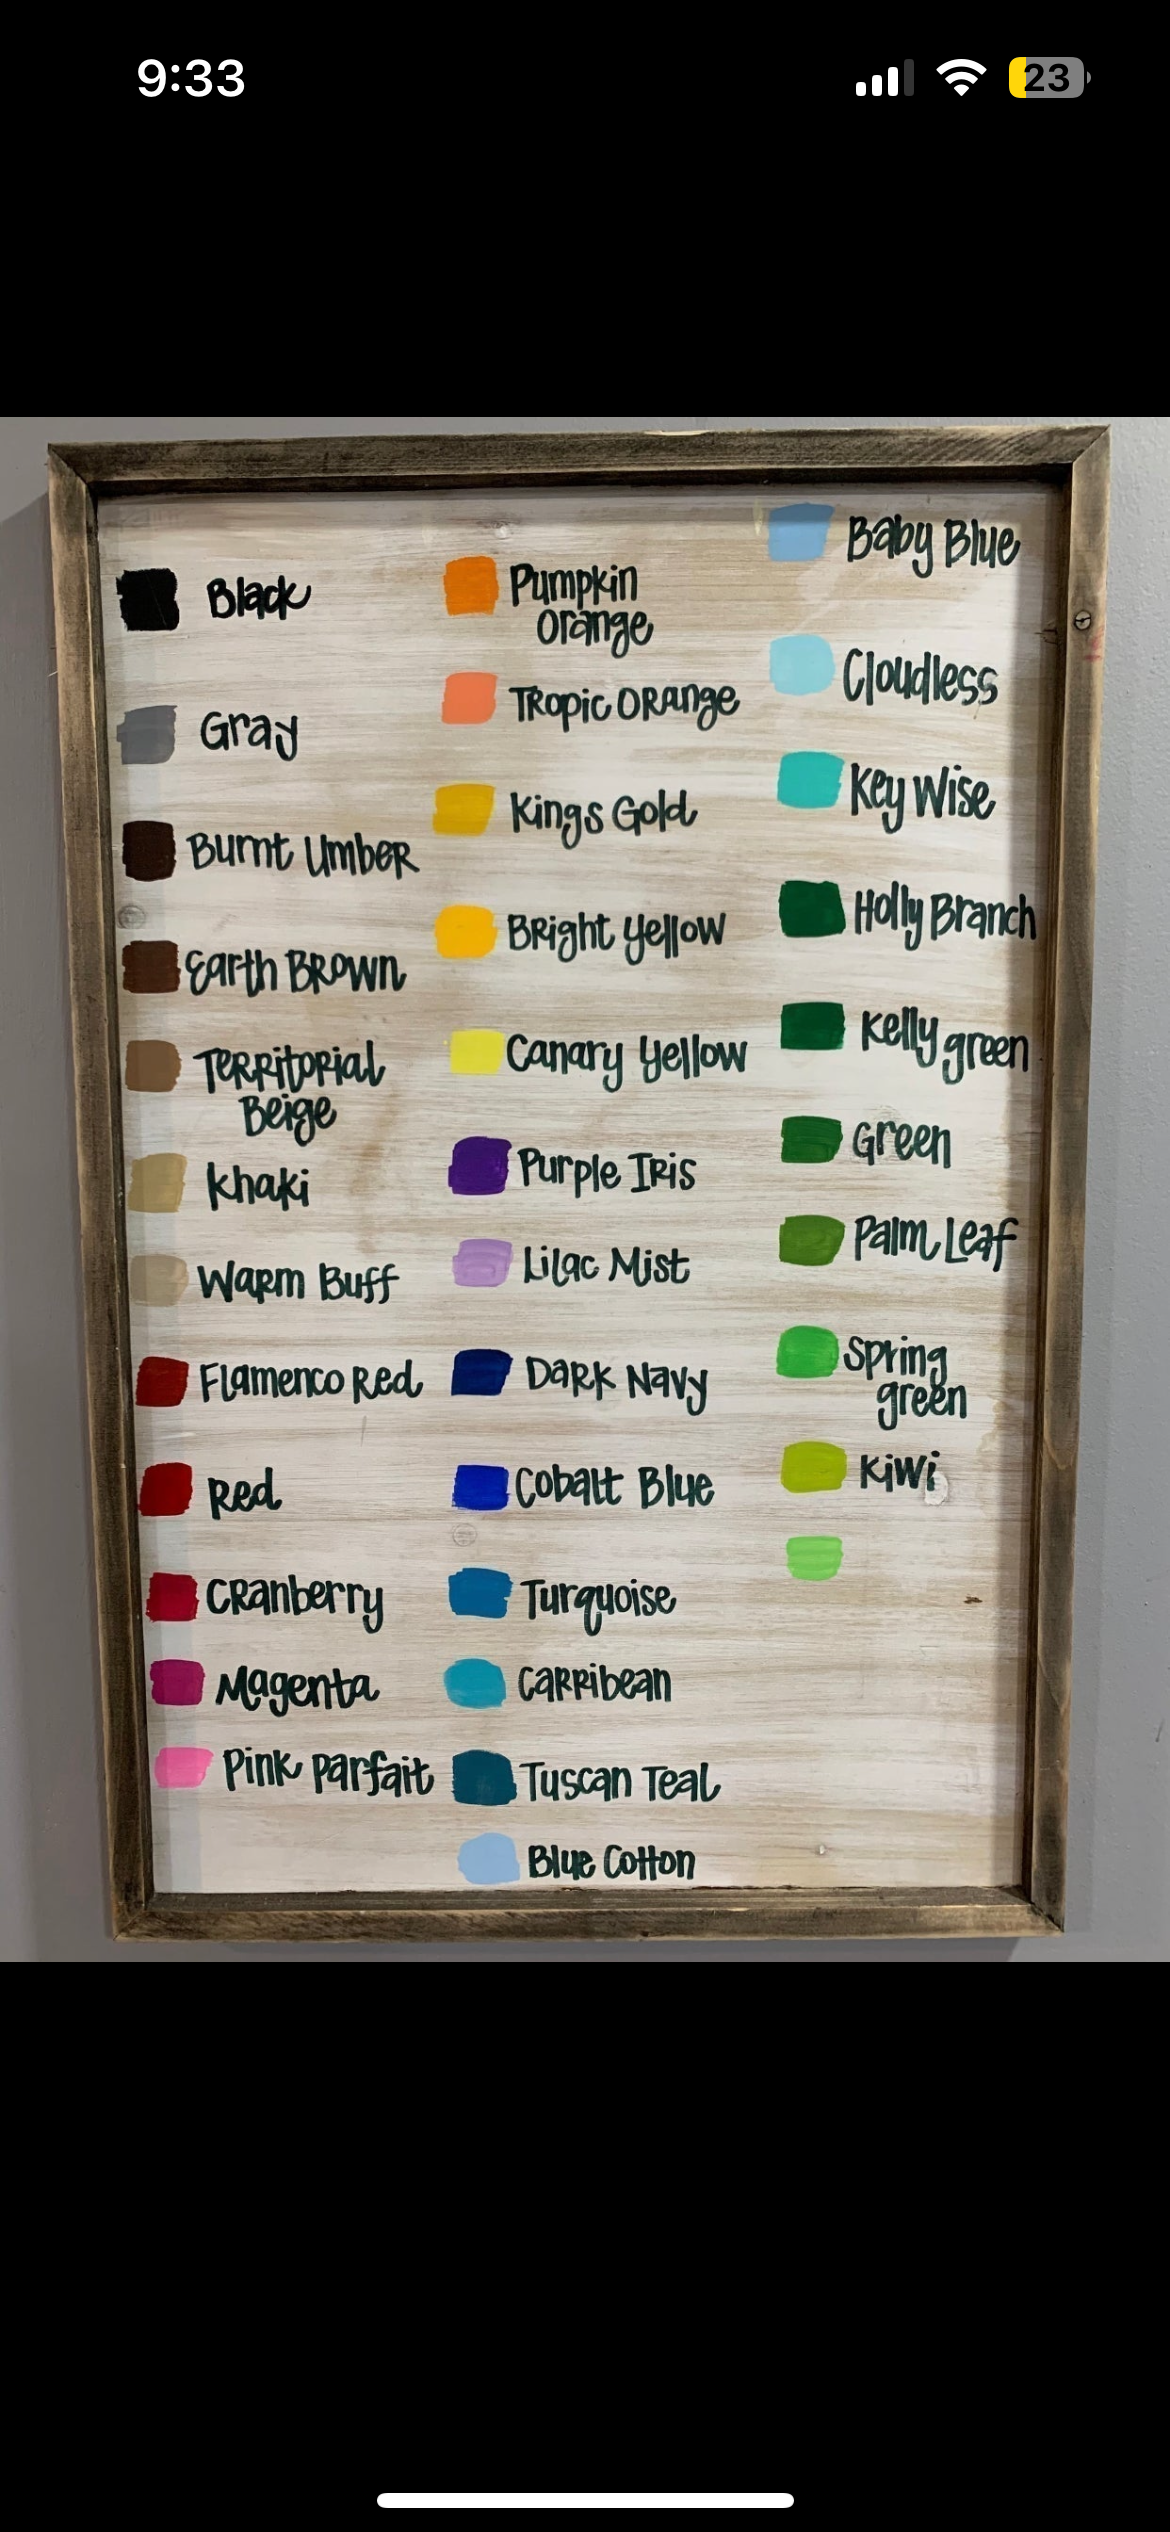 9:33
23
Black
Gray
Burnt Umber
Earth Brown
Territorial
Beige
Khaki
Warm Buff
Flamenco Red
Red
Cranberry
Magenta
Pink Parfait
Pumpkin
Orange
Tropic Orange
Kings Gold
Bright Yellow
Canary Yellow
Purple Iris
Lilac Mist
Dark Navy
Cobalt Blue
Turquoise
Carribean
Tuscan Teal
Blue Cotton
Baby Blue
Cloudless
Key Wise
Holly Branch
Kelly green
Green
Palm Leaf
Spring
green
Kiwi